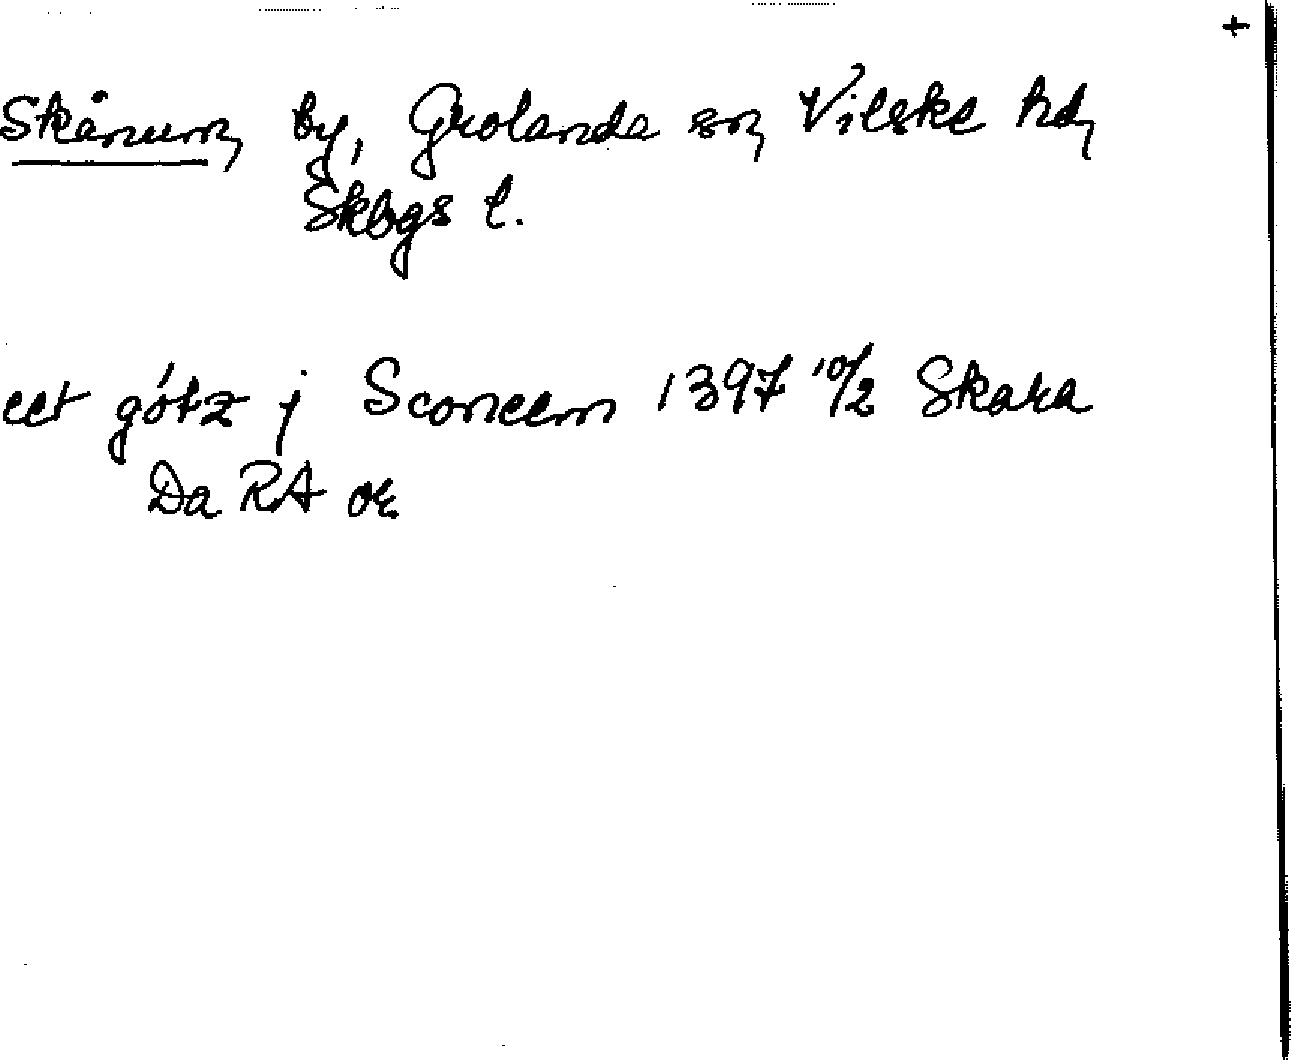 +
Skånum, by, Grolanda sn, Vilske hd,
Skbgs l.
eet götz j Sconeem 1397 10/2 Skara
Da RA or.